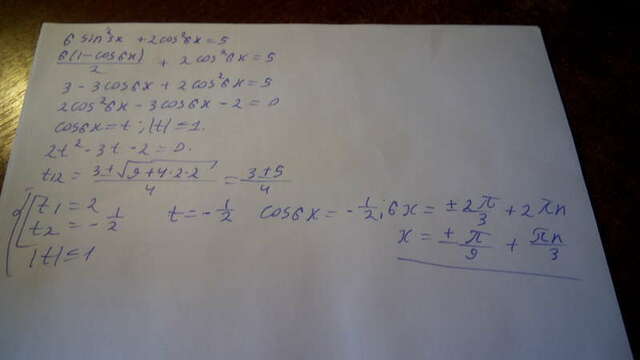 6 sin²3x + 2cos²6x = 5
6(1-cos6x)/2 + 2cos²6x = 5
3 - 3cos6x + 2cos²6x = 5
2cos²6x - 3cos6x - 2 = 0
cos6x = t ; |t| ≤ 1.
2t² - 3t - 2 = 0.
t12 = (3 ± √(9+4·2·2))/4 = (3±5)/4
t1 = 2
t2 = -1/2
|t| ≤ 1
t = -1/2 cos6x = -1/2; 6x = ±2π/3 + 2πn
x = ±π/9 + πn/3